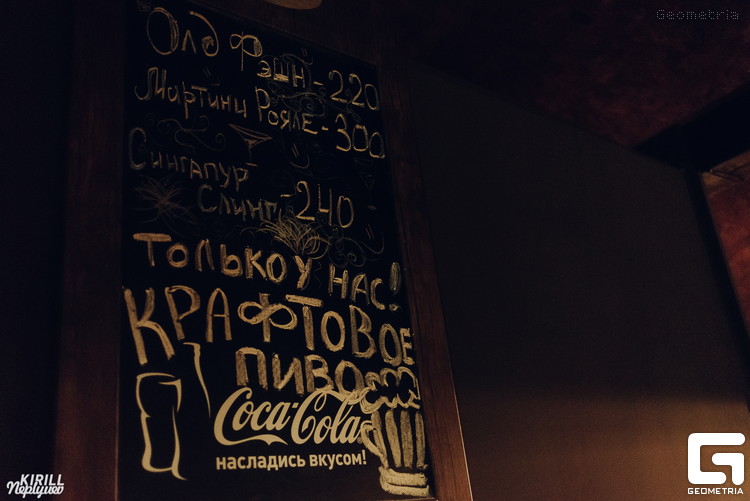 Geometria
Олд Фэшн - 220
Мартини Рояле - 300
Сингапур
Слинг - 240
ТОЛЬКО У НАС!
КРАФТОВОЕ
ПИВО
Coca-Cola
насладись вкусом!
KIRILL
Першуов
G
GEOMETRIA